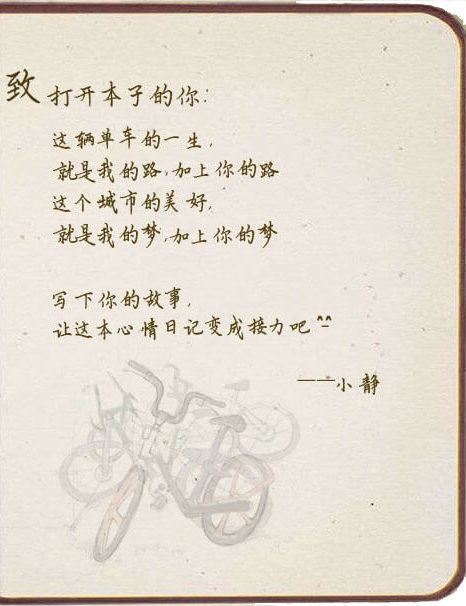 致 打开本子的你:
这辆单车的一生,
就是我的路,加上你的路
这个城市的美好,
就是我的梦,加上你的梦
写下你的故事,
让这本心情日记变成接力吧 ^-^
——小静